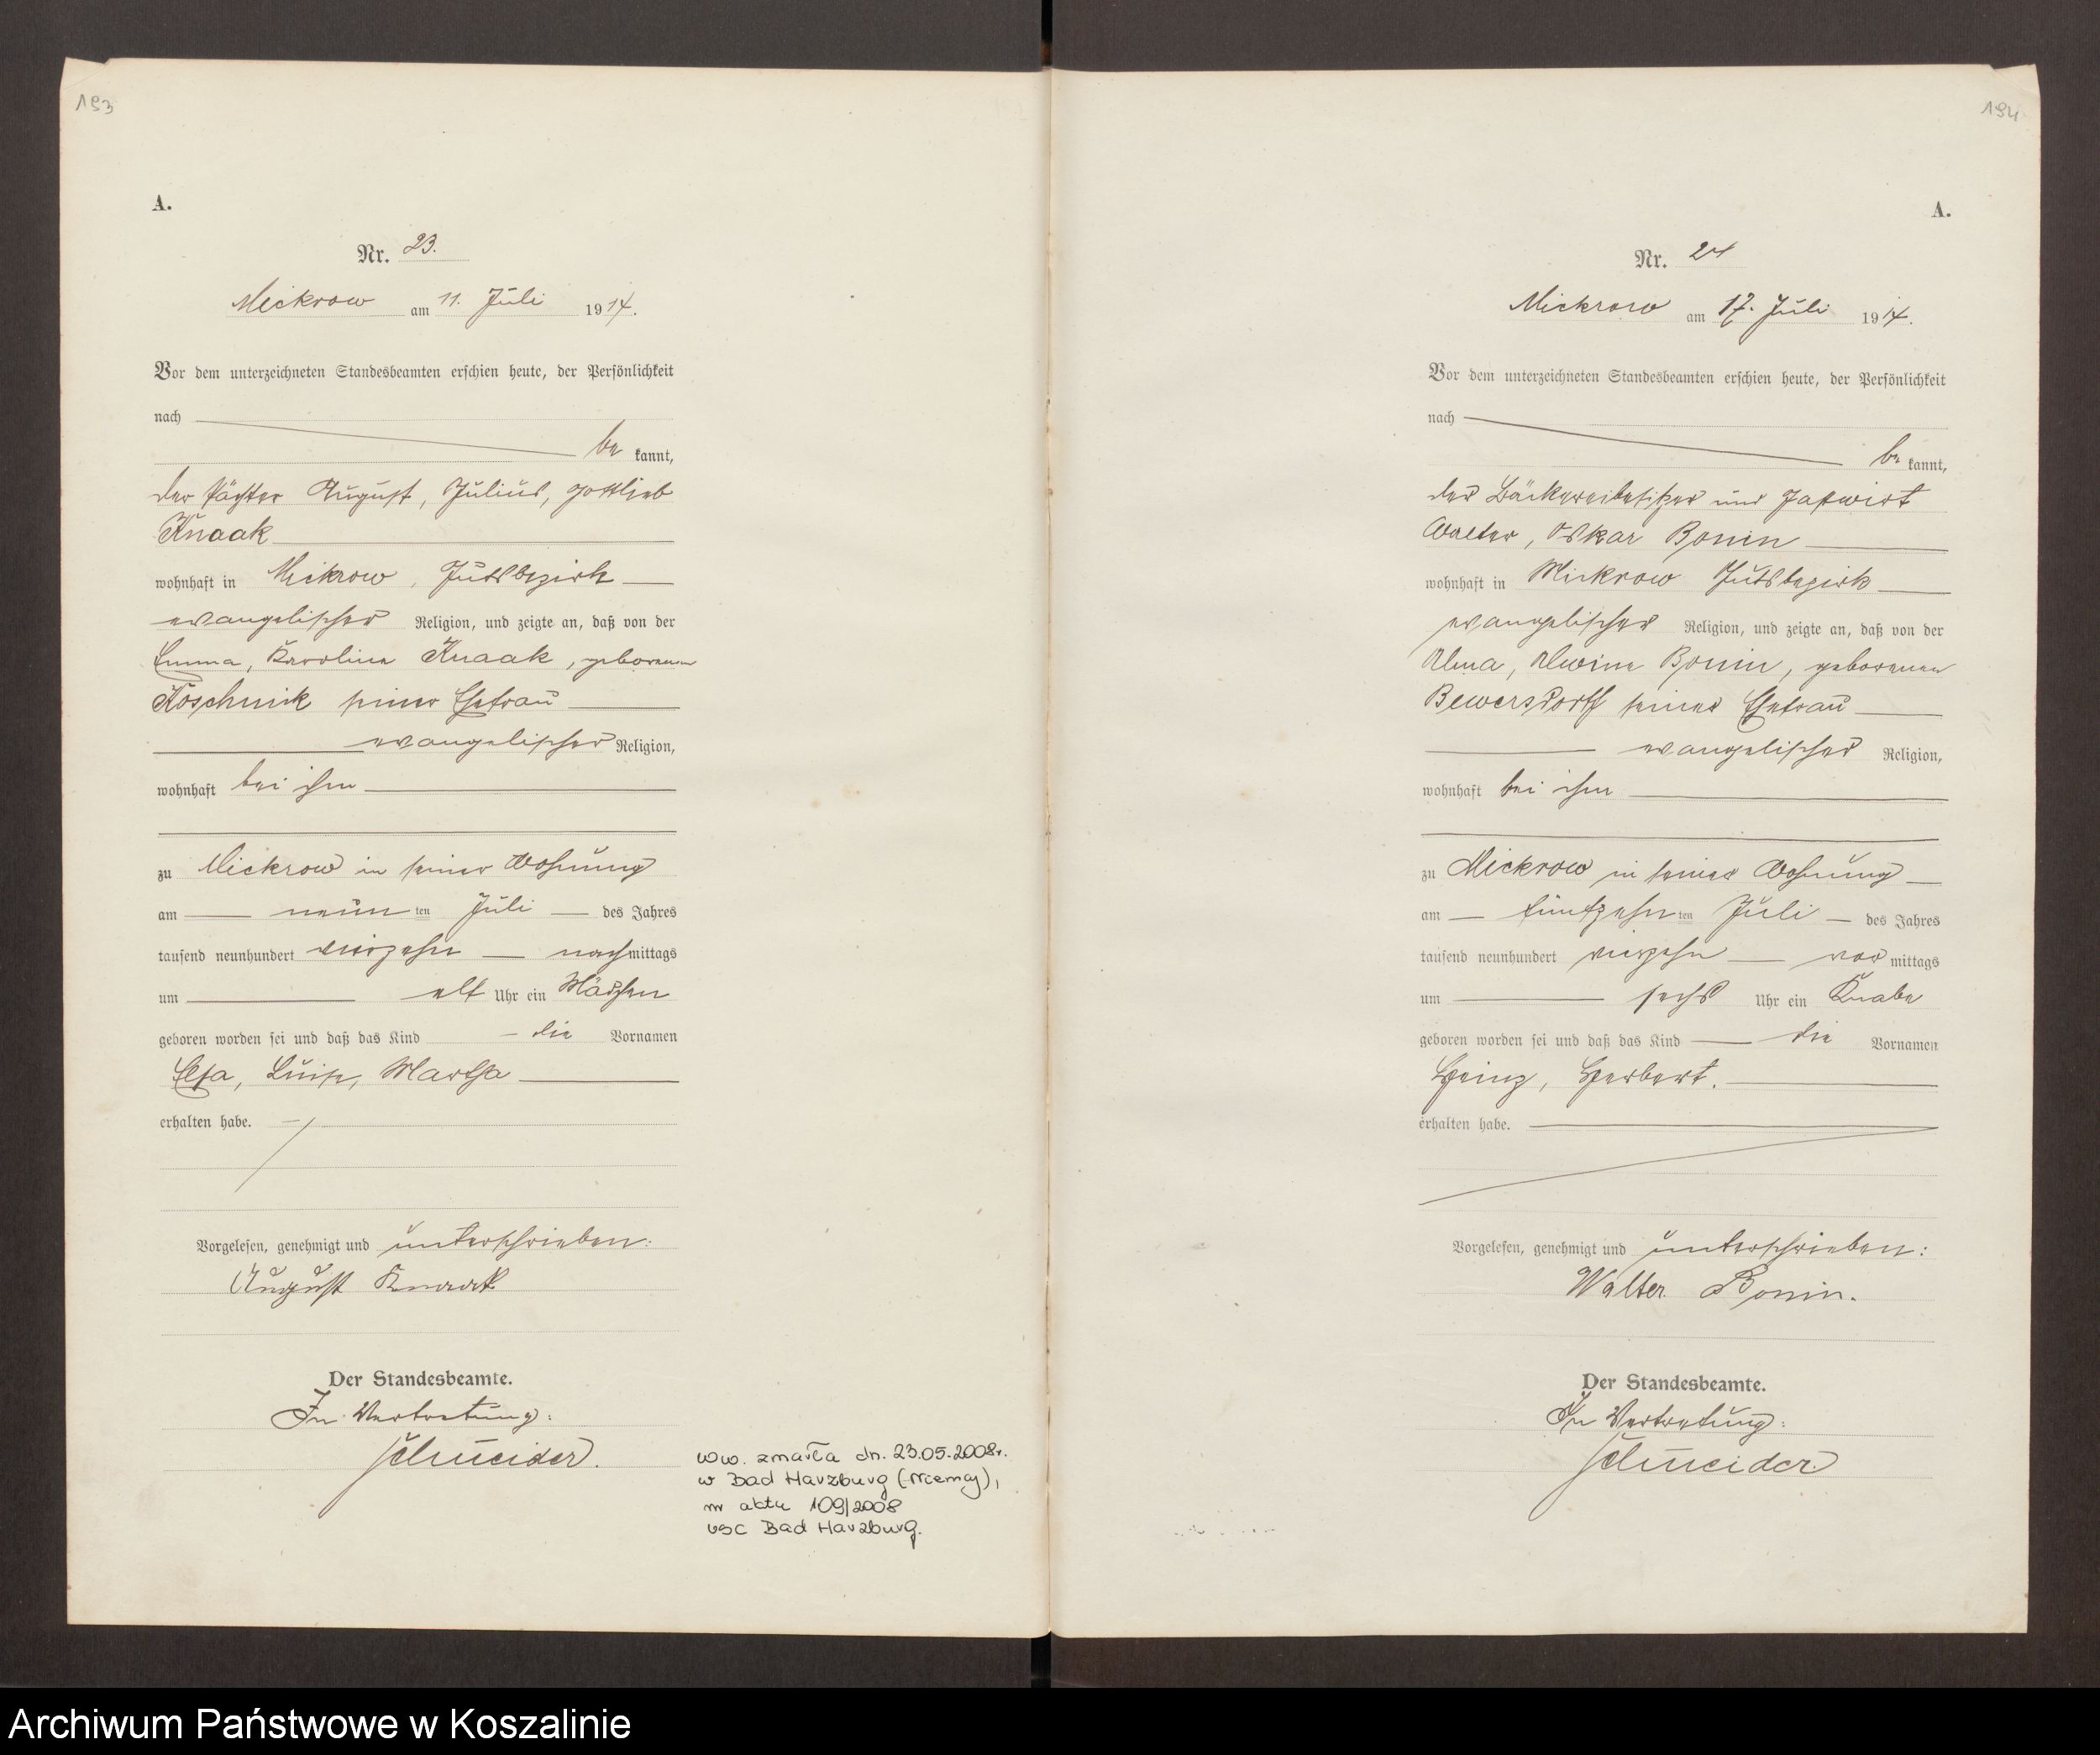 193
A.
Nr. 23.
Mickrow am 11. Juli 1914.
Vor dem unterzeichneten Standesbeamten erschien heute, der Persönlichkeit
nach
be kannt,
der Pächter August, Julius, Gottlieb
Knaak
wohnhaft in Mickrow, Gutsbezirk
evangelischer Religion, und zeigte an, daß von der
Emma, Karoline Knaak, geborenen
Koschnik seiner Ehefrau
evangelischer Religion,
wohnhaft bei ihm
zu Mickrow in seiner Wohnung
am neun ten Juli des Jahres
tausend neunhundert vierzehn nachmittags
um elf Uhr ein Mädchen
geboren worden sei und daß das Kind die Vornamen
Luise, Martha
erhalten habe.
Vorgelesen, genehmigt und unterschrieben:
August Knaak
Der Standesbeamte.
In Vertretung:
Schneider.
ww. zmarła dn. 23.05.2008r.
w Bad Harzburg (Niemcy),
nr aktu 109/2008
USC Bad Harzburg.
194
A.
Nr. 24
Mickrow am 17. Juli 1914.
Vor dem unterzeichneten Standesbeamten erschien heute, der Persönlichkeit
nach
be kannt,
der Bäckereibesitzer und Gastwirt
Walter, Oskar Bonin
wohnhaft in Mickrow Gutsbezirk
evangelischer Religion, und zeigte an, daß von der
Alma, Alwine Bonin, geborenen
Bewersdorff seiner Ehefrau
evangelischer Religion,
wohnhaft bei ihm
zu Mickrow in seiner Wohnung
am fünfzehn ten Juli des Jahres
tausend neunhundert vierzehn vor mittags
um sechs Uhr ein Knabe
geboren worden sei und daß das Kind die Vornamen
Heinz, Herbert.
erhalten habe.
Vorgelesen, genehmigt und unterschrieben:
Walter Bonin.
Der Standesbeamte.
In Vertretung:
Schneider.
Archiwum Państwowe w Koszalinie